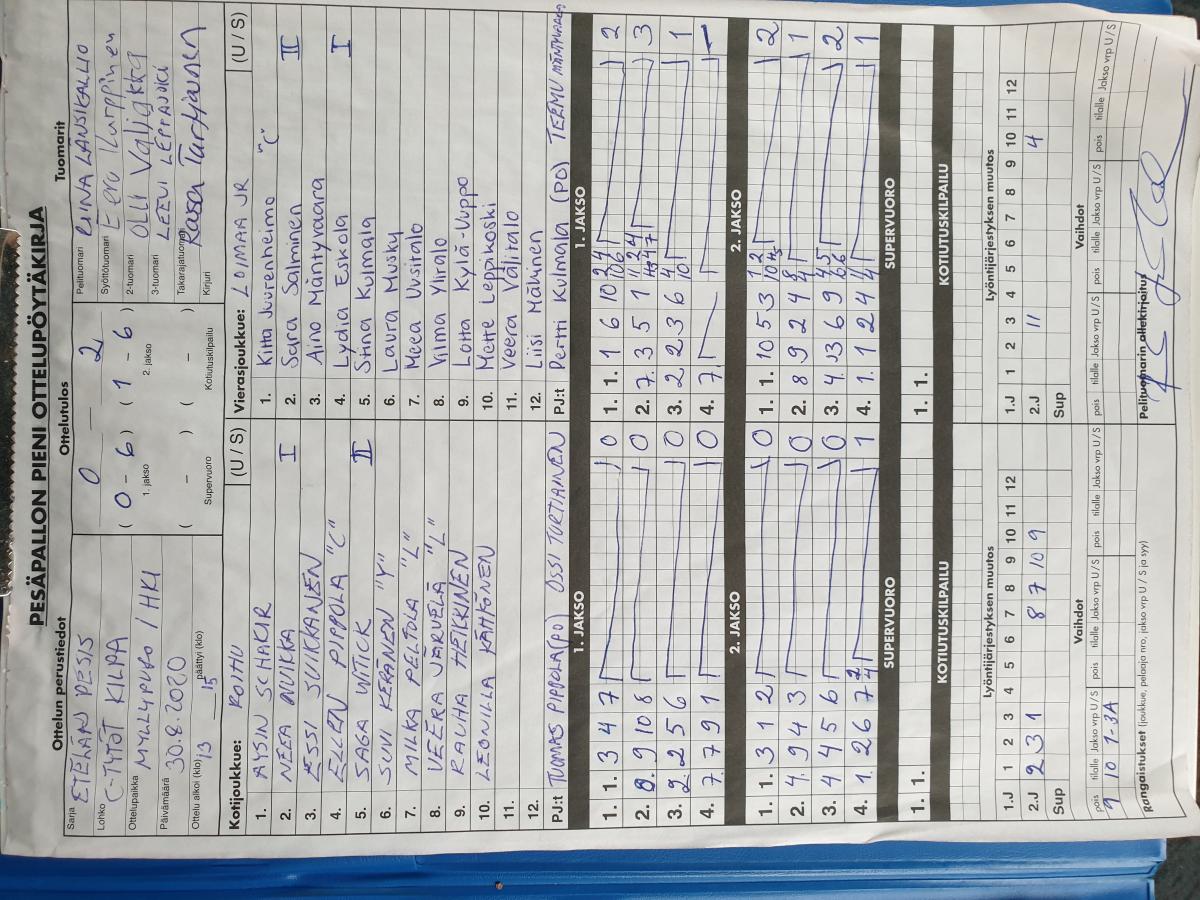 PESÄPALLON PIENI OTTELUPÖYTÄKIRJA
Ottelun perustiedot
Ottelutulos
Tuomarit
Sarja ETELÄN PESIS
Lohko C-TYTÖT KILPA
Ottelupaikka MYLLYPURO / HKI
Päivämäärä 30.8.2020
Ottelu alkoi (klo) 13 15 päättyi (klo)
0 2
( 0 - 6 ) ( 1 - 6 )
1. jakso 2. jakso
( - ) ( - )
Supervuoro Kotiutuskilpailu
Pelituomari LÄNSIKALLIO
Syöttötuomari Eeru Karppinen
2-tuomari Olli
3-tuomari LEEVI LEPPÄJOKI
Takarajatuomari
Kirjuri Roosa Tarhiainen
Kotijoukkue: ROIHU (U / S)
1. AYSIN SCHAKIR
2. NEEA NUIKKA I
3. ESSI SUIKKANEN
4. ELLEN PIPPOLA "C"
5. SAGA WITICK II
6. SUVI KERÄNEN "Y"
7. MILKA PELTOLA "L"
8. VEERA JÄRVELÄ "L"
9. RAUHA HEIKKINEN
10. LEONILLA KÄHÖNEN
11.
12.
PJ:t TUOMAS PIPPOLA (PO) OSSI TURTIAINEN
Vierasjoukkue: LOIMAA JR (U / S)
1. Kitta Juurenheimo "C"
2. Sara Salminen II
3. Aino Mäntyvaara
4. Lydia Eskola I
5. Stina Kulmala
6. Laura Musky
7. Meea Uusitalo
8. Vilma Yliralo
9. Lotta Kylä-Uuppo
10. Mette Leppikoski
11. Veera Välitalo
12. Liisi Mäkinen
PJ:t Pertti Kulmala (PO) TEEMU MÄNTYVAARA
1. JAKSO
1. 1. 3 4 7 0
2. 8. 9 10 8 0
3. 2 2 5 6 0
4. 7. 7 9 1 0
2. JAKSO
1. 1. 3 1 2 0
2. 4. 9 4 3 0
3. 4 4 5 6 0
4. 1. 2 6 7 1
SUPERVUORO
1. 1.
KOTIUTUSKILPAILU
1. JAKSO
1. 1. 1 6 10 2
2. 7. 3 5 1 3
3. 2 2 3 6 1
4. 7. -
2. JAKSO
1. 1. 10 5 3 2
2. 8 9 2 4 1
3. 4. 3 6 9 2
4. 1. 1 2 4 1
SUPERVUORO
1. 1.
KOTIUTUSKILPAILU
Lyöntijärjestyksen muutos
1.J 1 2 3 4 5 6 7 8 9 10 11 12
2.J 2 3 1 8 7 10 9
Sup
Lyöntijärjestyksen muutos
1.J 1 2 3 4 5 6 7 8 9 10 11 12
2.J 11 4
Sup
Vaihdot
pois tilalle Jakso vrp U / S pois tilalle Jakso vrp U / S pois tilalle Jakso vrp U / S
9 10 1-3A
Vaihdot
pois tilalle Jakso vrp U / S pois tilalle Jakso vrp U / S pois tilalle Jakso vrp U / S
Rangaistukset (joukkue, pelaaja nro, jakso vrp U / S ja syy)
Pelituomarin allekirjoitus